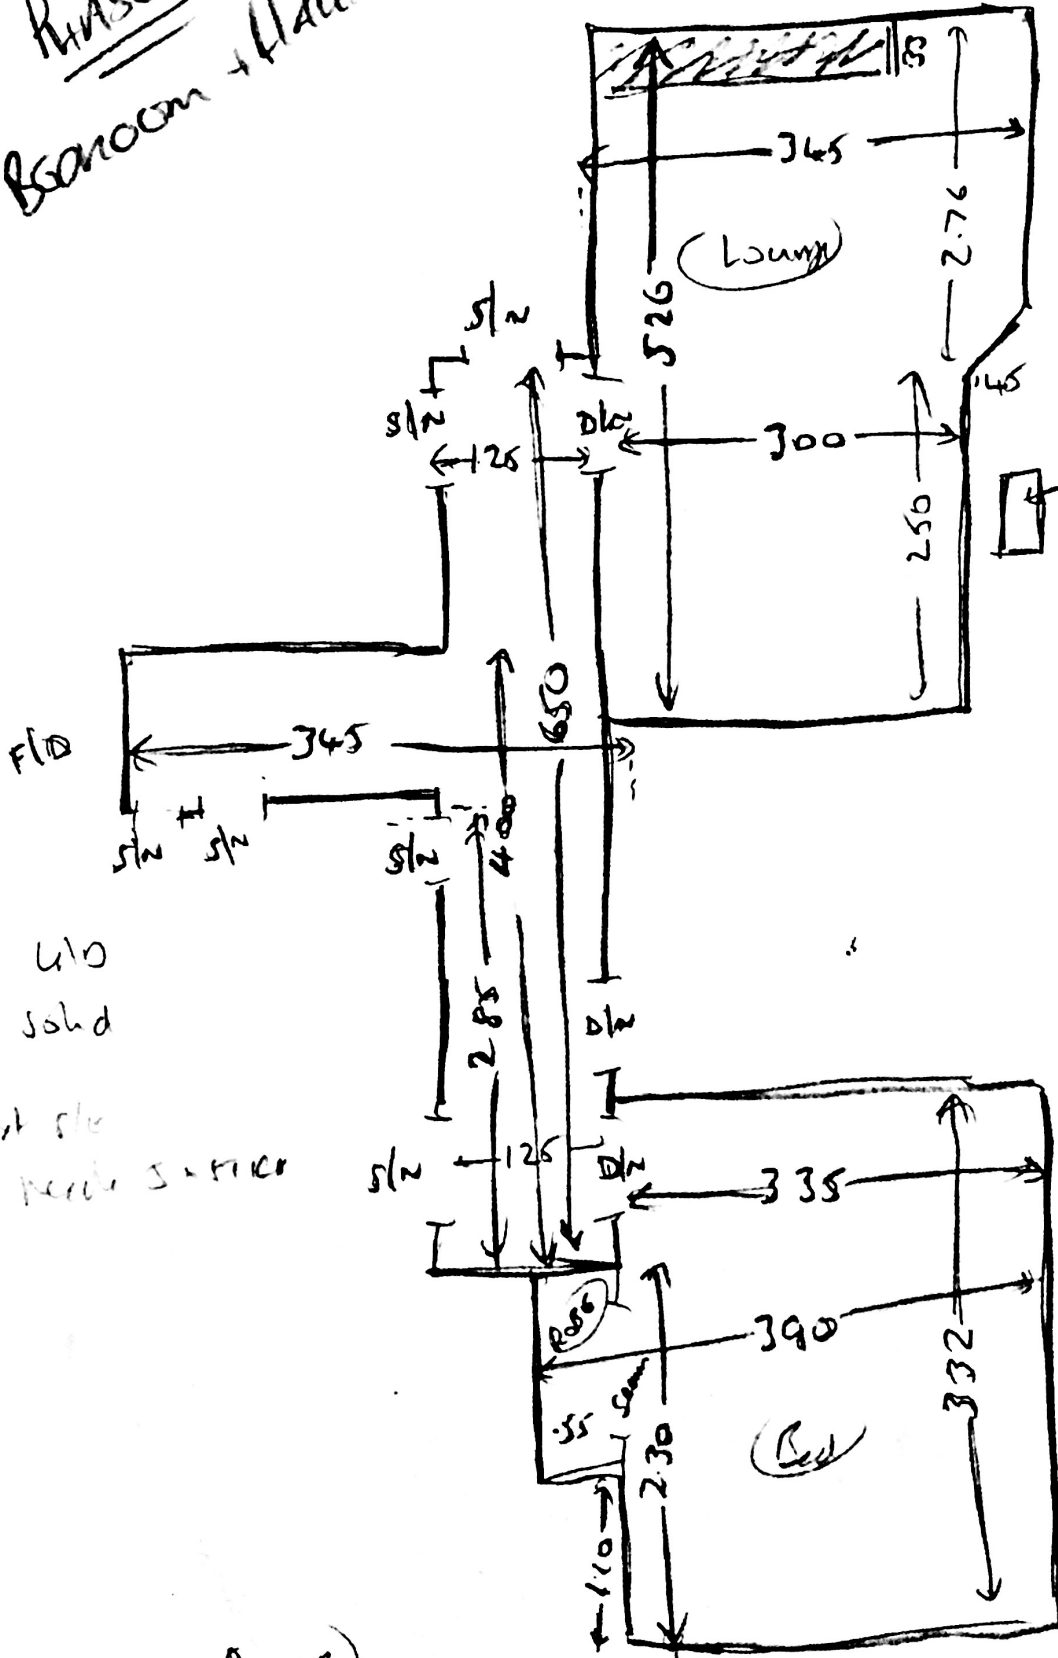 Bedroom +
33
345
2.76
Lounge
526
S/N
.45
S/N
D/N
300
125
250
650
F/D
345
400
S/N
S/N
S/N
U/D
solid
285
D/N
S/N
125
D/N
335
Robe
390
332
.55
Seam
2.30
Bed
1.10